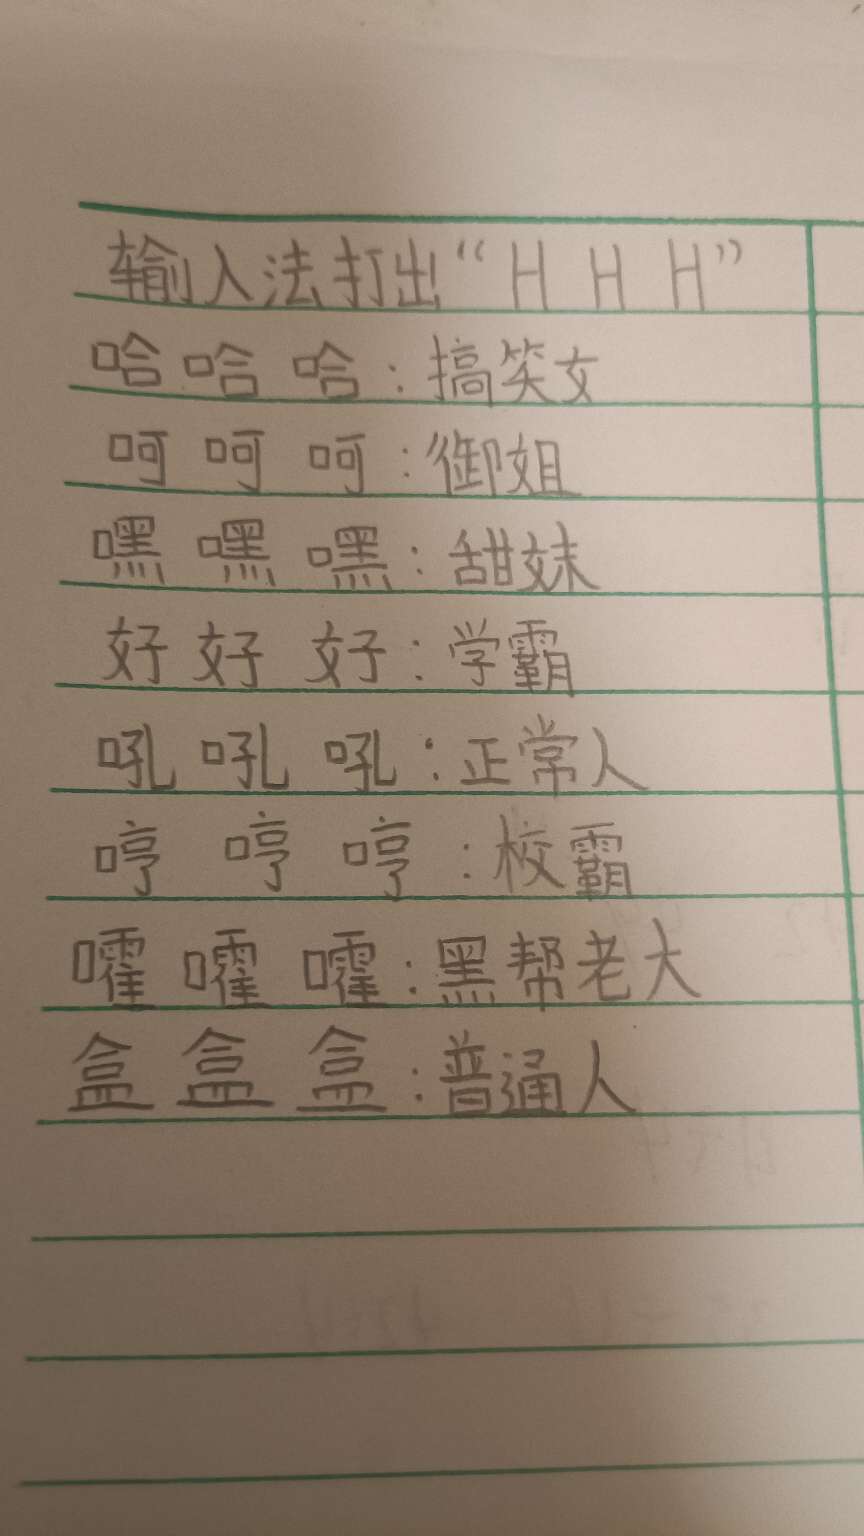 输入法打出“H H H”
哈哈哈:搞笑女
呵呵呵:御姐
嘿嘿嘿:甜妹
好好好:学霸
吼吼吼:正常人
哼哼哼:校霸
嚯嚯嚯:黑帮老大
盒盒盒:普通人